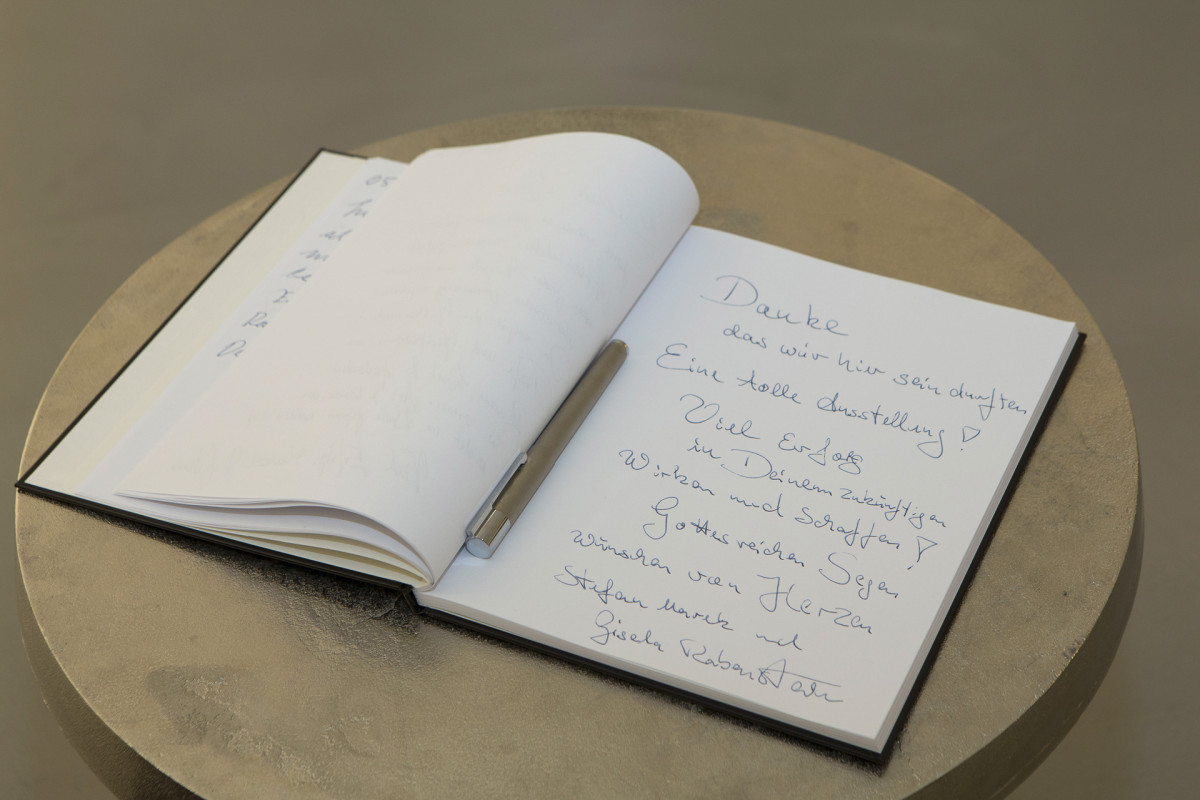 05
fü
al
m
le
I
Ra
De
Danke
das wir hier sein durften
Eine tolle Ausstellung !
Viel Erfolg
in Deinem zukünftigen
Wirken und Schaffen !
Gottes reichen Segen
wünschen von Herzen
Stefan Marek und
Gisela Rabenstein